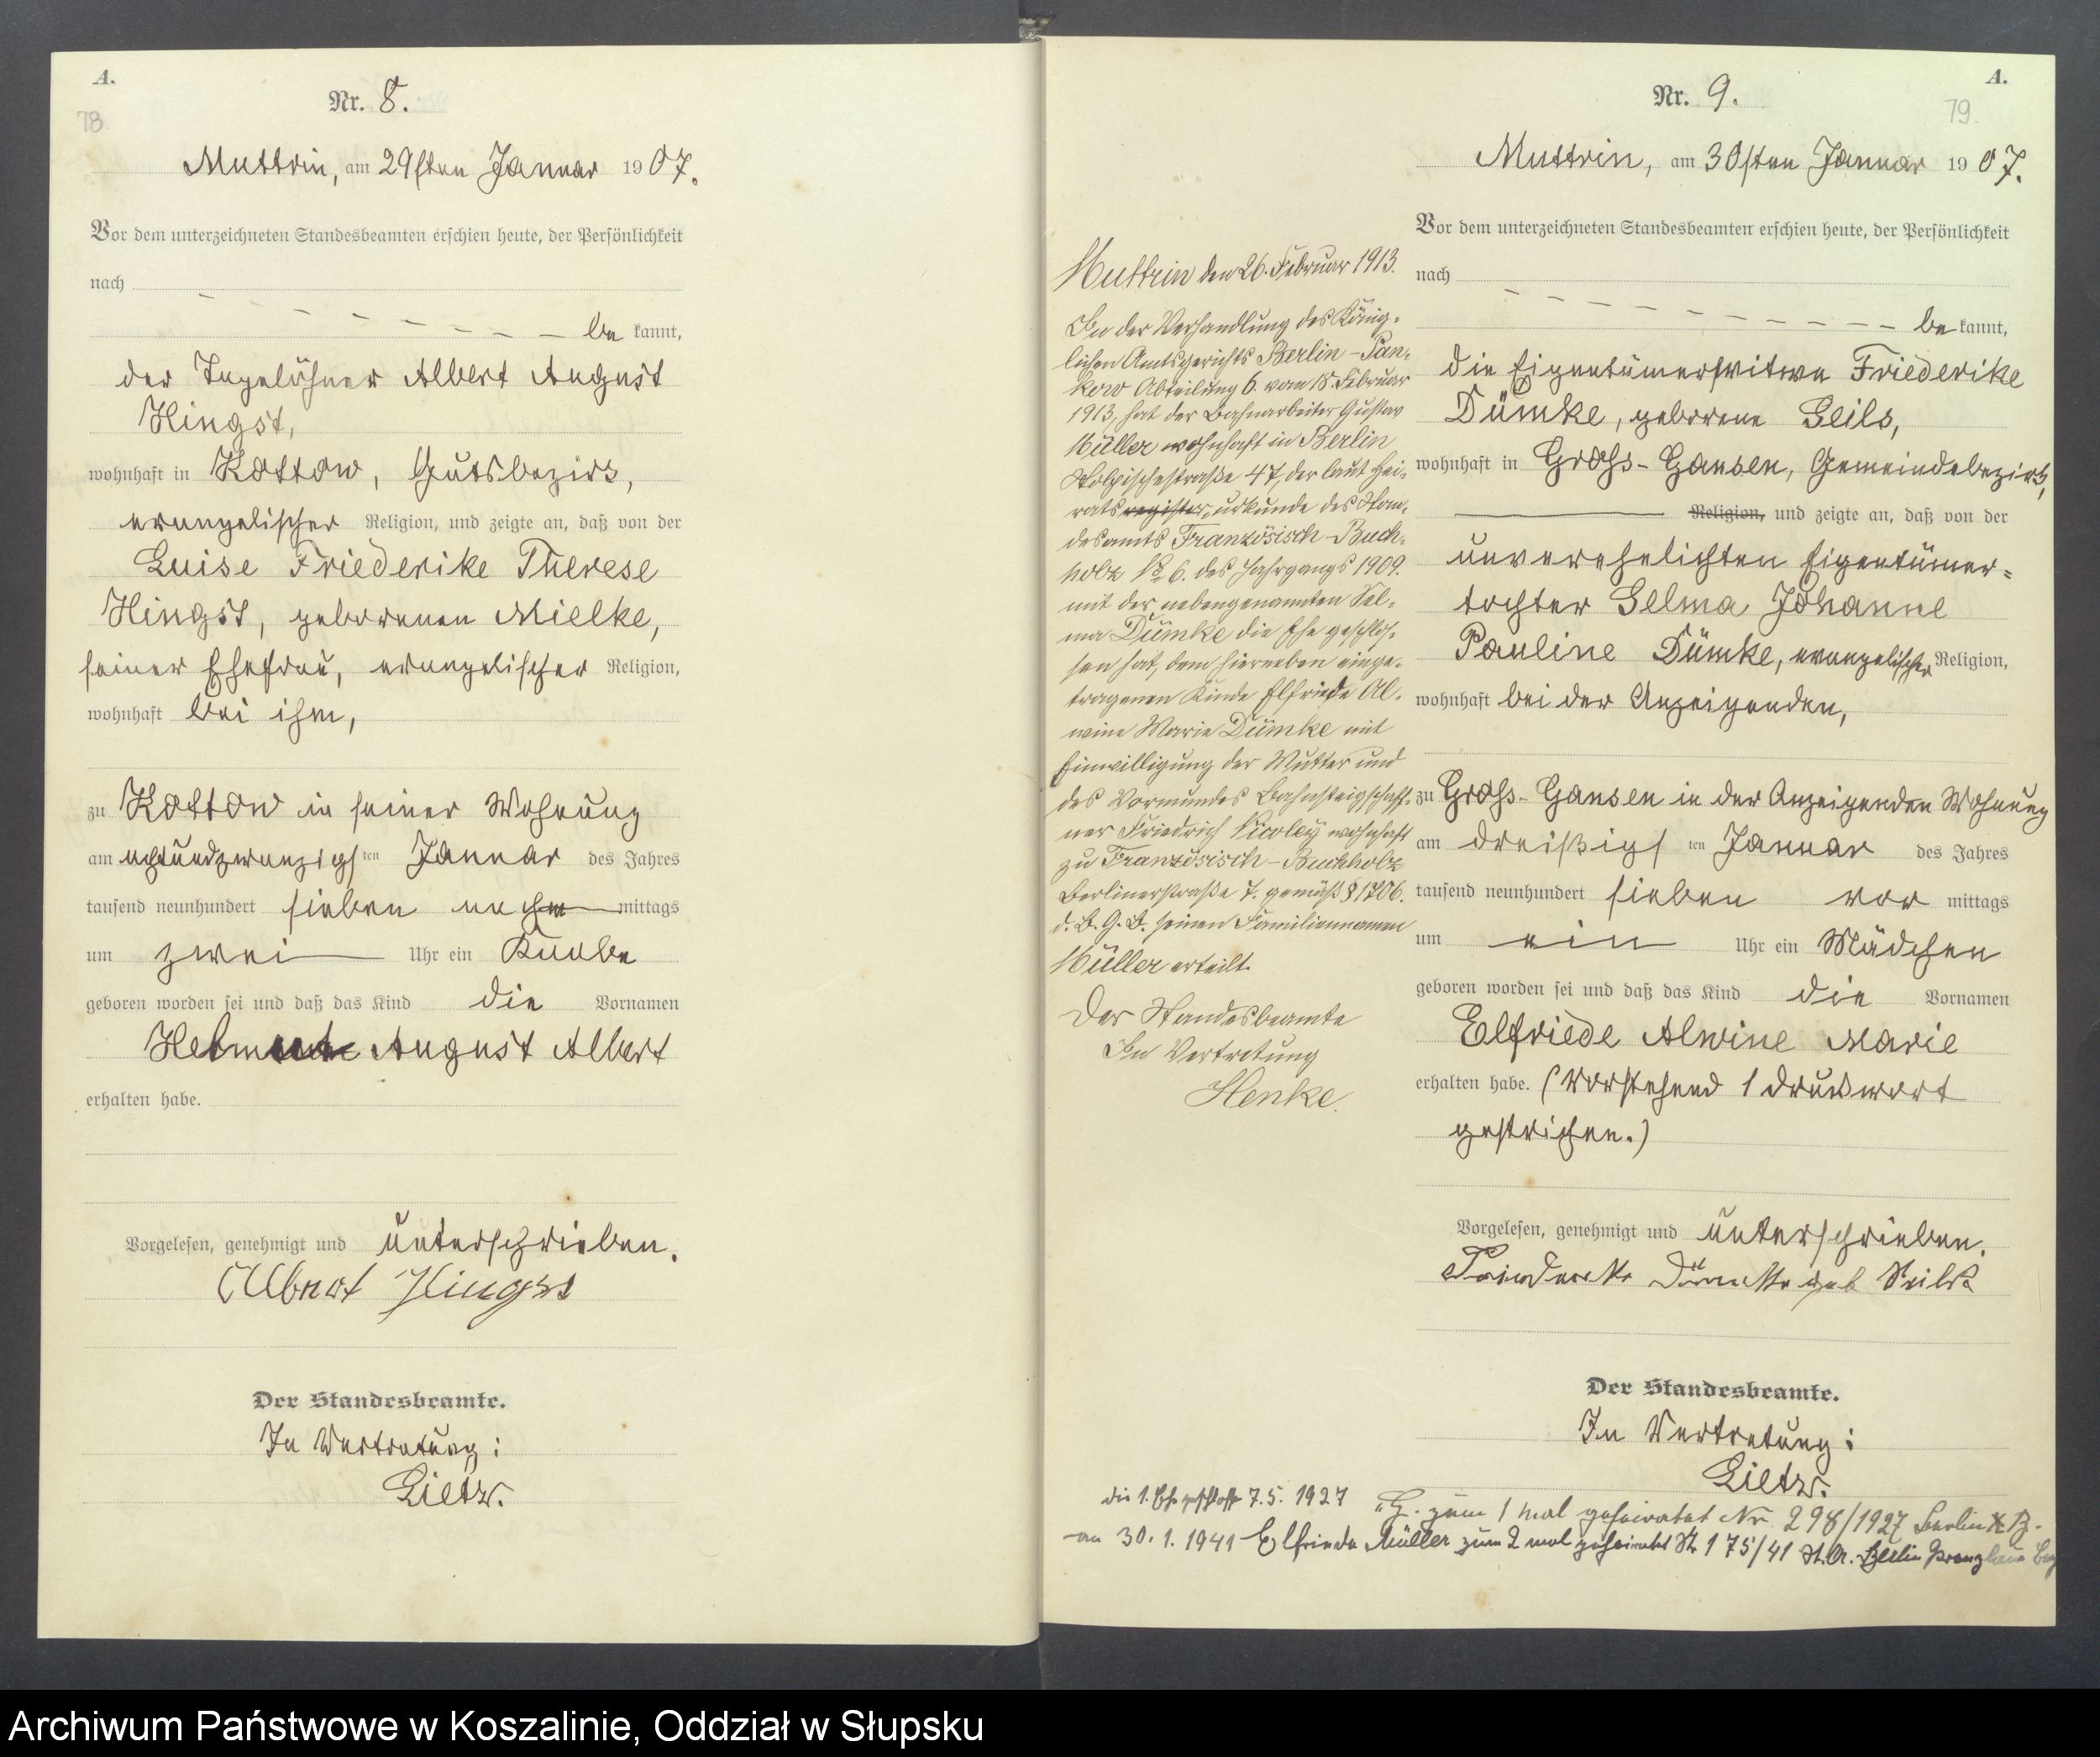 A.
78.
Nr. 8.
Muttrin, am 29sten Januar 1907.
Vor dem unterzeichneten Standesbeamten erschien heute, der Persönlichkeit
nach
be kannt,
der Tagelöhner Albert August
Hingst,
wohnhaft in Kottow, Gutsbezirk,
evangelischer Religion, und zeigte an, daß von der
Luise Friederike Therese
Hingst, geborenen Mielke,
seiner Ehefrau, evangelischer Religion,
wohnhaft bei ihm,
zu Kottow in seiner Wohnung
am achtundzwanzigsten Januar des Jahres
tausend neunhundert sieben nachmittags
um zwei Uhr ein Knabe
geboren worden sei und daß das Kind die Vornamen
August Albert
erhalten habe.
Vorgelesen, genehmigt und unterschrieben.
Albert Hingst
Der Standesbeamte.
In Vertretung:
Lietz.
A.
79.
Nr. 9.
Muttrin, am 30sten Januar 1907.
Vor dem unterzeichneten Standesbeamten erschien heute, der Persönlichkeit
nach
be kannt,
die Eigentümerwitwe Friederike
Dümke, geborene Seils,
wohnhaft in Gross-Gansen, Gemeindebezirk,
Religion, und zeigte an, daß von der
unverehelichten Eigentümer-
tochter Selma Johanne
Pauline Dümke, evangelischer Religion,
wohnhaft bei der Anzeigenden,
zu Gross-Gansen in der Anzeigenden Wohnung
am dreißigsten Januar des Jahres
tausend neunhundert sieben vor mittags
um ein Uhr ein Mädchen
geboren worden sei und daß das Kind die Vornamen
Elfriede Alwine Marie
erhalten habe. (Vorstehend 1 Druckwort
gestrichen.)
Vorgelesen, genehmigt und unterschrieben.
Friederike Dümke geb Seils
Der Standesbeamte.
In Vertretung:
Lietz.
Muttrin den 26. Februar 1913.
In der Verhandlung des König-
lichen Amtsgerichts Berlin-Pan-
kow Abteilung 6. vom 18. Februar
1913, hat der Bahnarbeiter Gustav
Müller wohnhaft in Berlin
Stolpischestraße 47, der laut Hei-
ratsregister, urkunde des Stan-
desamts Französisch-Buch-
holz No 6. des Jahrgangs 1909.
mit der nebengenannten Sel-
ma Dümke die Ehe geschlos-
sen hat, dem hierneben einge-
tragenen Kinde Elfriede Al-
wine Marie Dümke mit
Einwilligung der Mutter und
des Vormundes Bahnsteigschaff-
ner Friedrich Nicoley wohnhaft
zu Französisch-Buchholz
Berlinerstraße 7. gemäß § 1706.
d. B. G. B. seinen Familiennamen
Müller erteilt.
Der Standesbeamte
In Vertretung
Henke.
die 1. Ehe geschloss 7.5. 1927 zum 1 mal geheiratet Nr. 298/1927 Berlin
am 30.1.1941 Elfriede Müller zum 2 mal geheiratet Nr 175/41 St.A. Berlin Prenzlauer Berg
Archiwum Państwowe w Koszalinie, Oddział w Słupsku